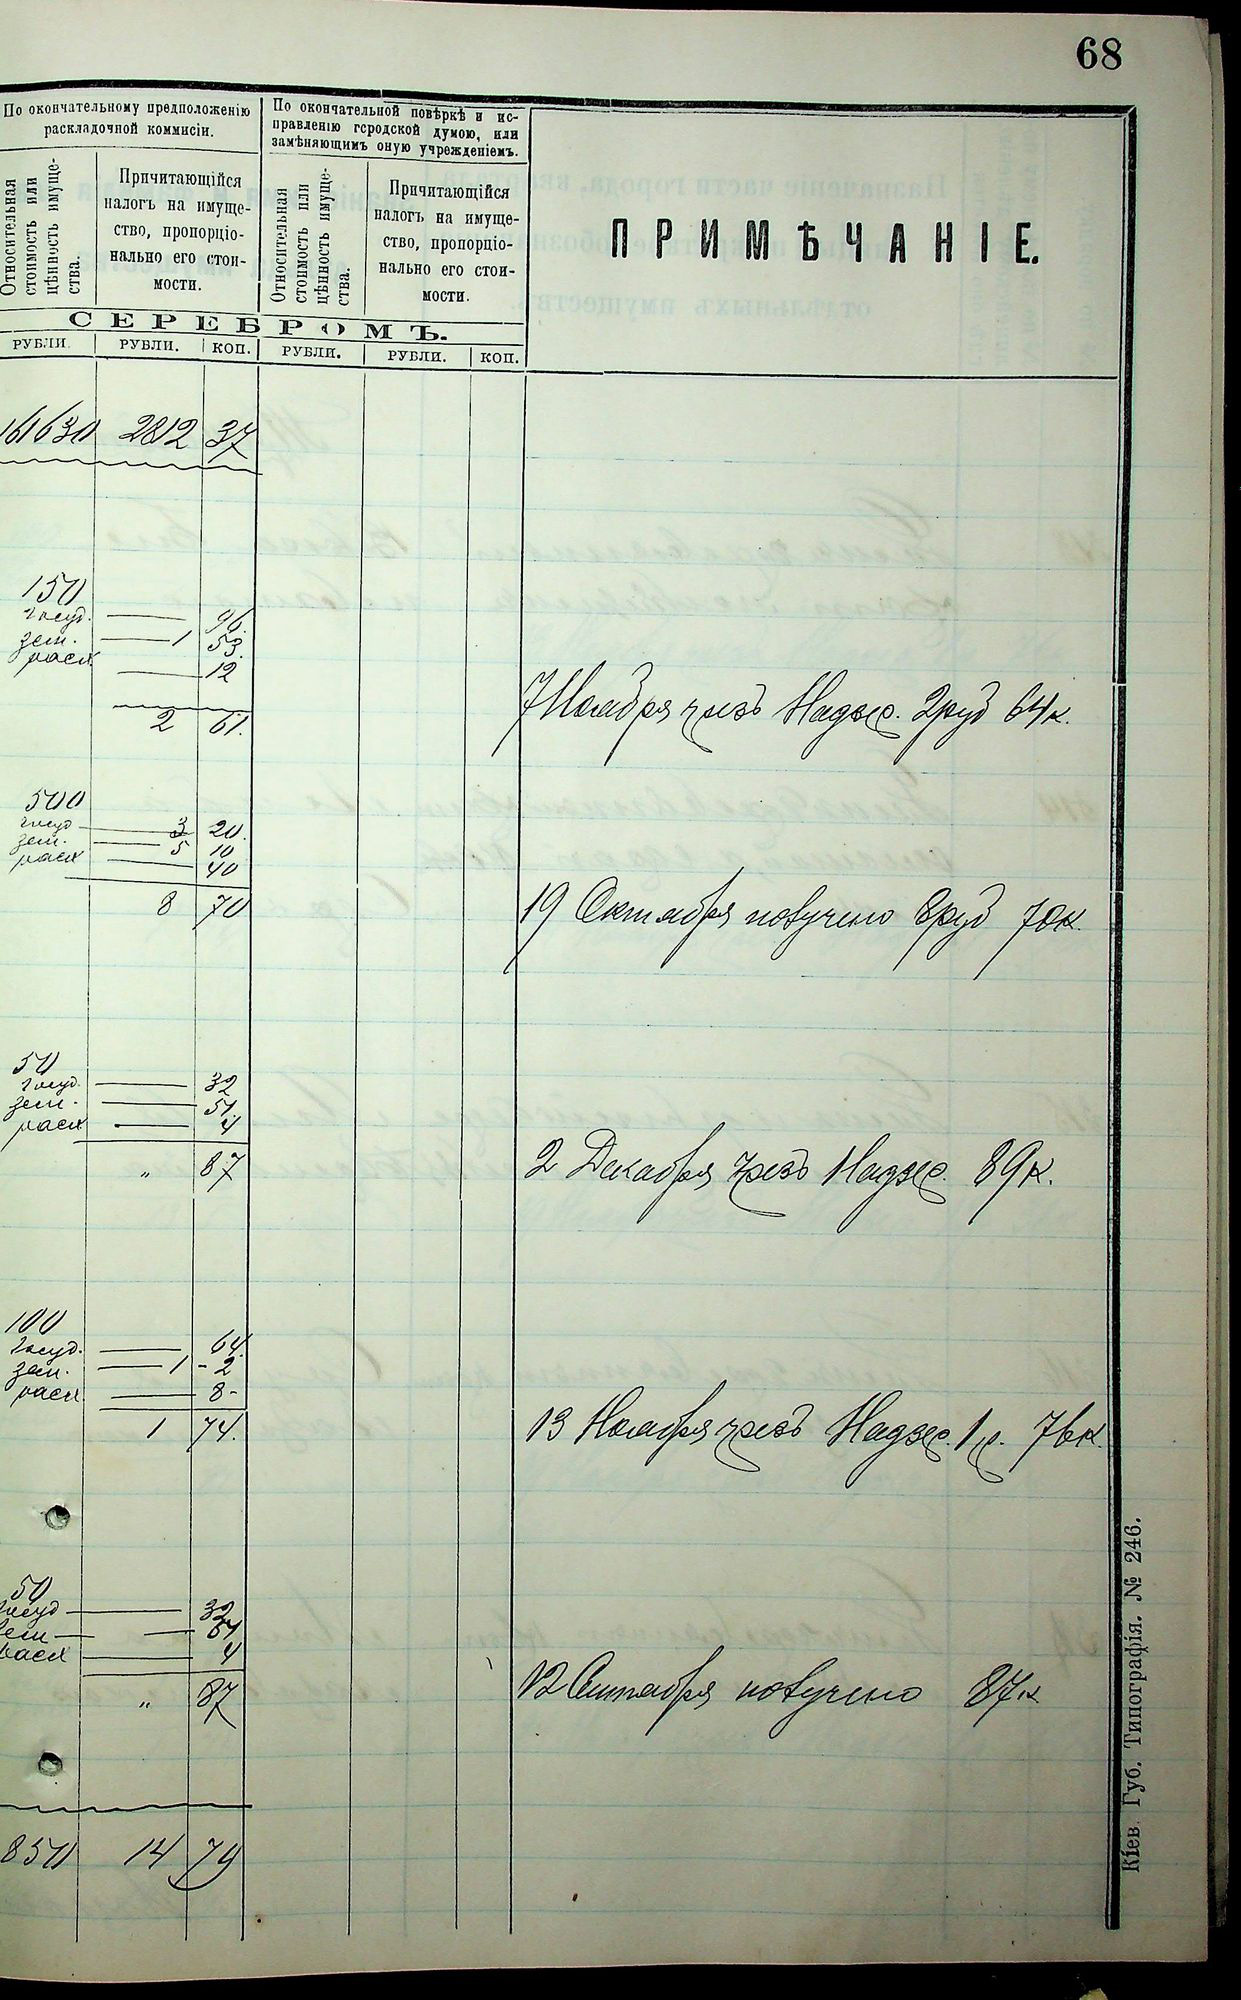 68
По окончательному предположенію
раскладочной коммисіи.
По окончательной повѣркѣ и ис-
правленію городской думою, или
замѣняющимъ оную учрежденіемъ.
Относительная
стоимость или
цѣнность имуще-
ства.
Причитающійся
налогъ на имуще-
ство, пропорціо-
нально его стои-
мости.
Относительная
стоимость или
цѣнность имуще-
ства.
Причитающійся
налогъ на имуще-
ство, пропорціо-
нально его стои-
мости.
ПРИМѢЧАНІЕ.
СЕРЕБРОМЪ.
РУБЛИ. РУБЛИ. КОП. РУБЛИ. РУБЛИ. КОП.
161630 2812 37
150
госуд. 96
зем. 1 53
раскл. 12
2 61.
7 Ноября чрезъ Надзер. 2 руб 64 к.
500
госуд 3 20
зем. 5 10
раскл 40
8 70
19 Октября получено 8 руб 70 к.
50
госуд. 32
зем. 51
раскл 4
" 87
2 Декабря чрезъ Надзер. 89 к.
100
госуд. 64
зем. 1 - 2
раскл 8 -
1 74.
13 Ноября чрезъ Надзер. 1 р. 76 к.
50
госуд 32
зем 51
раскл 4
" 87
12 Октября получено 87 к
850 14 79
Кіев. Губ. Типографія. № 246.